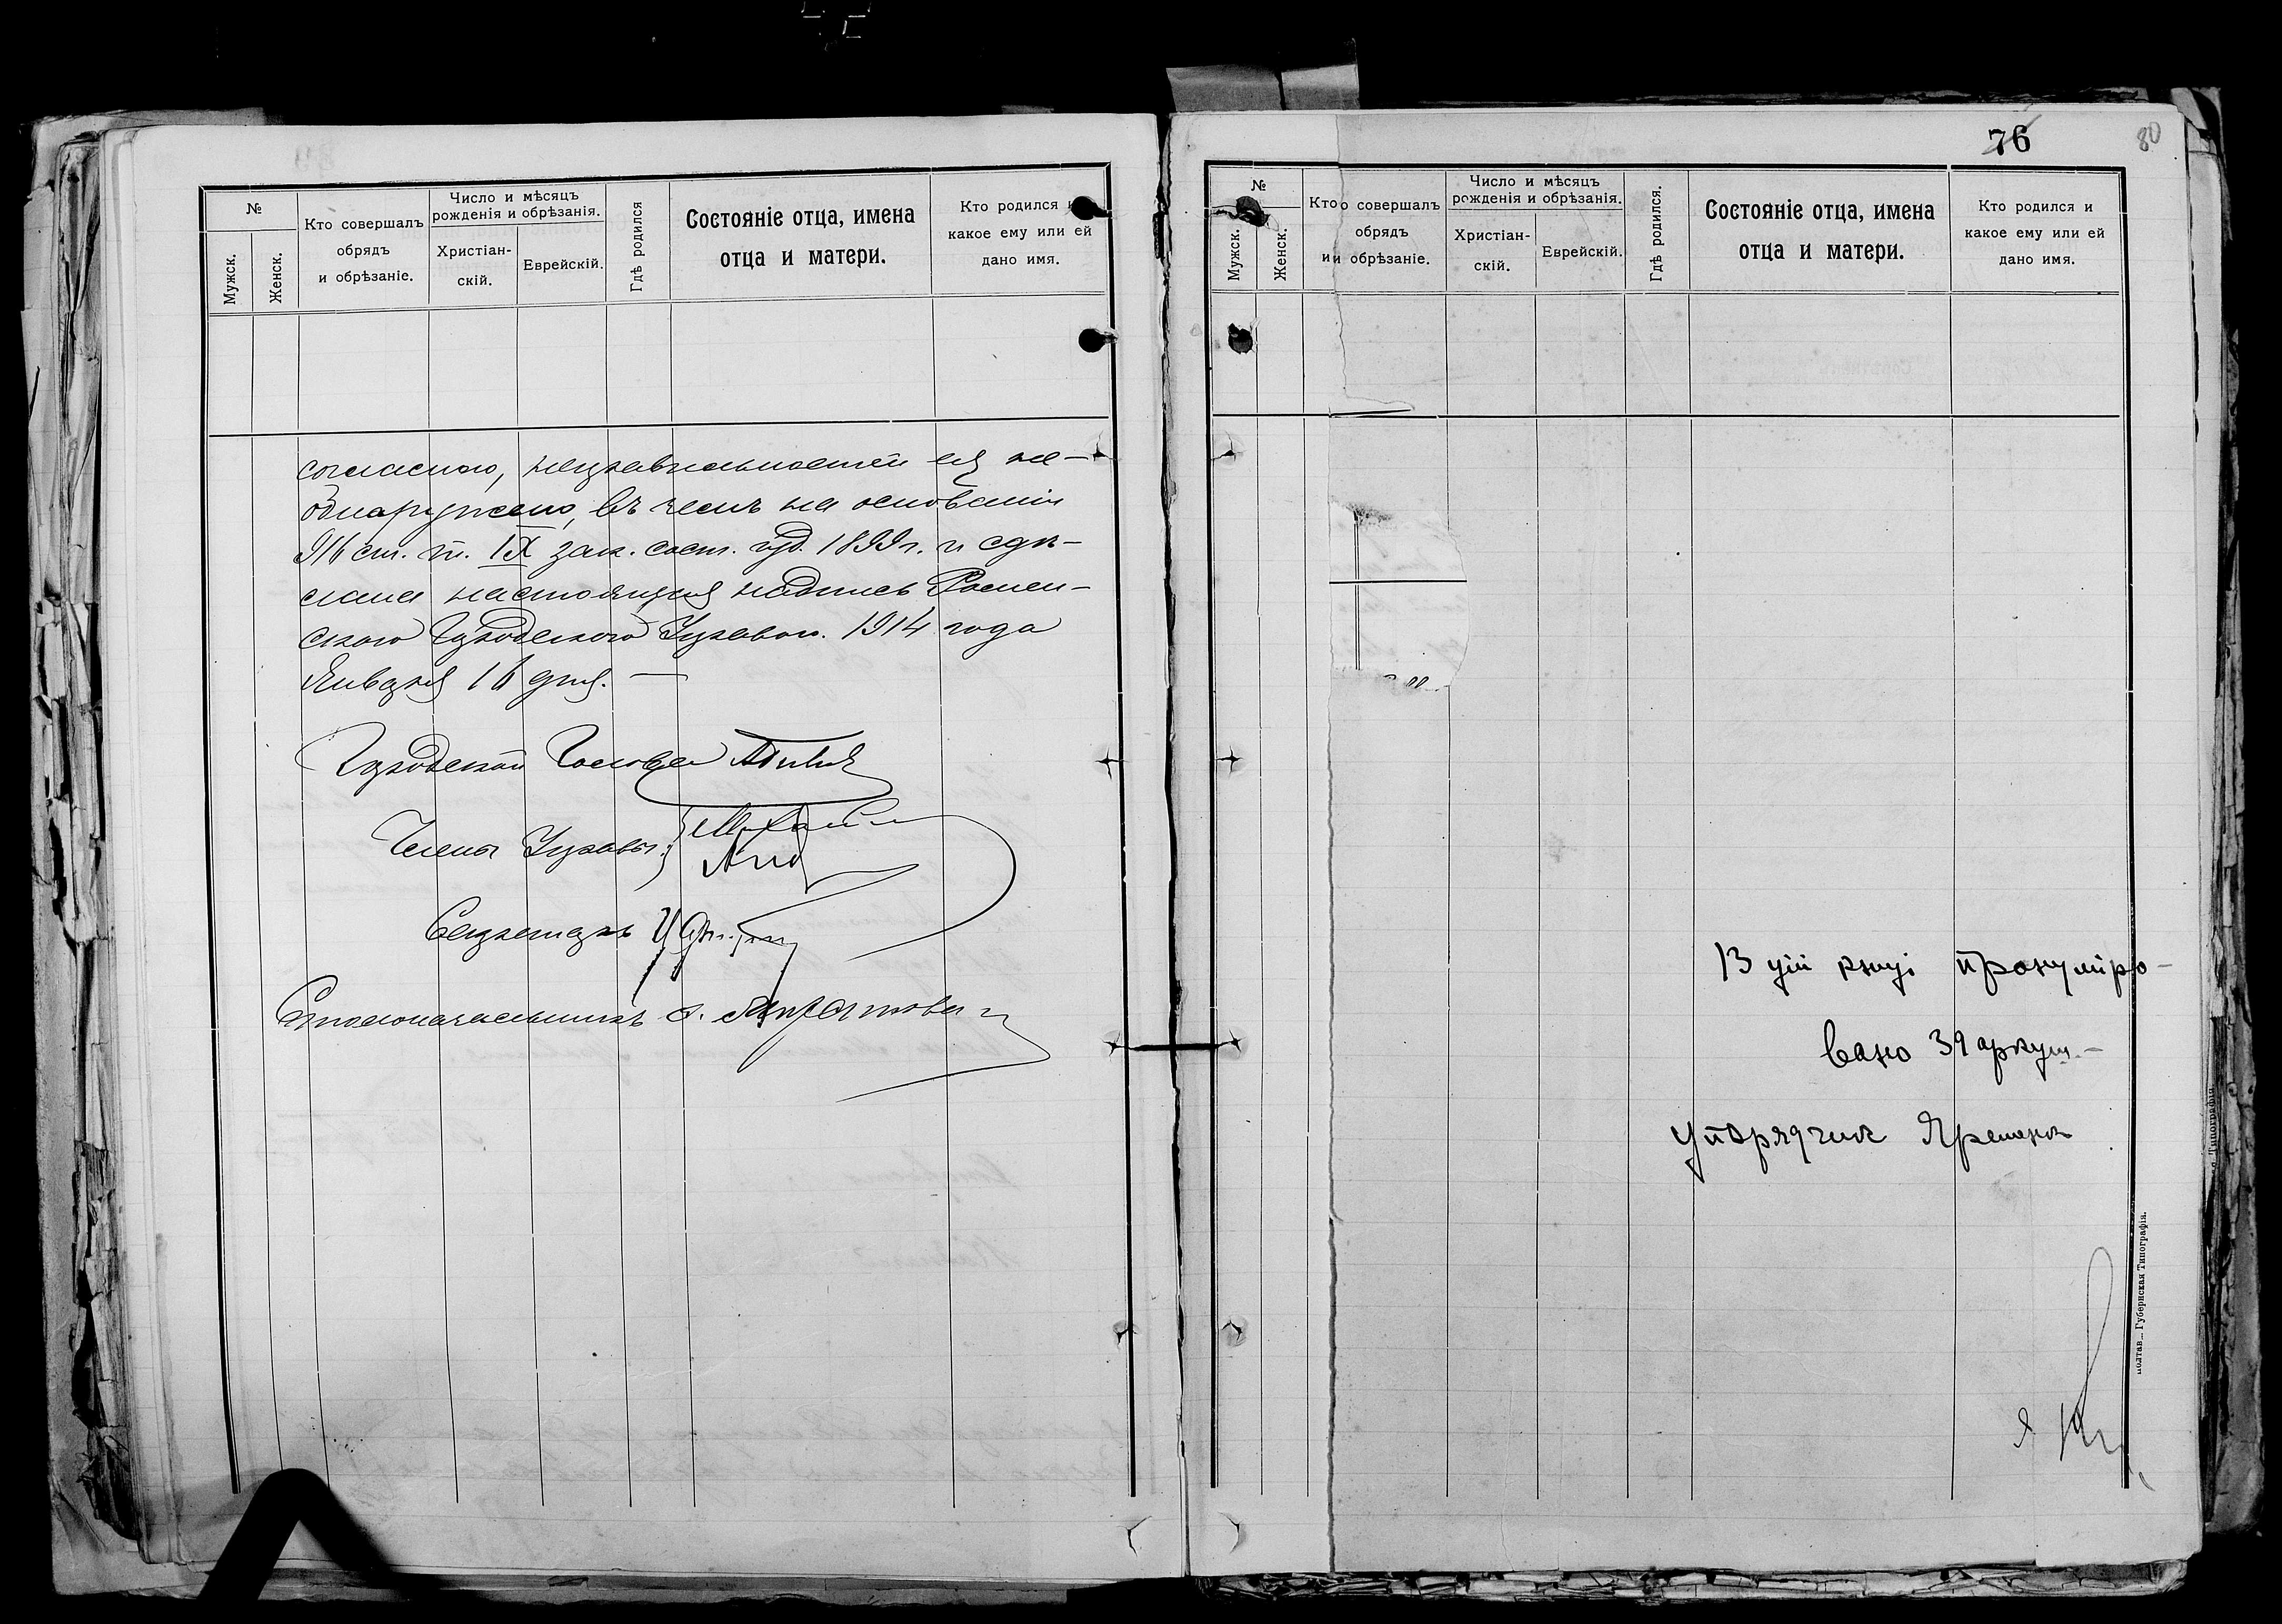 №
Мужск.
Женск.
Кто совершалъ
обрядъ
и обрѣзаніе.
Число и мѣсяцъ
рожденія и обрѣзанія.
Христіан-
скій.
Еврейскій.
Гдѣ родился
Состояніе отца, имена
отца и матери.
Кто родился
какое ему или ей
дано имя.
согласною, неправильностей не-
обнаружено, въ чемъ на основаніи
916 ст. т. IX зак. сост. изд. 1899 г. и сдѣ-
лана настоящая надпись Ромен-
ского Городского Управою. 1914 года
Января 16 дня. —
Городской Голова
Члены Управы:
Секретарь
Столоначальникъ
76
80
№
Мужск.
Женск.
Кто совершалъ
обрядъ
и обрѣзаніе.
Число и мѣсяцъ
рожденія и обрѣзанія.
Христіан-
скій.
Еврейскій.
Гдѣ родился.
Состояніе отца, имена
отца и матери.
Кто родился и
какое ему или ей
дано имя.
В цій книзі пронуміро-
вано 39 аркуш.-
упорядчик
Губернская Типографія.